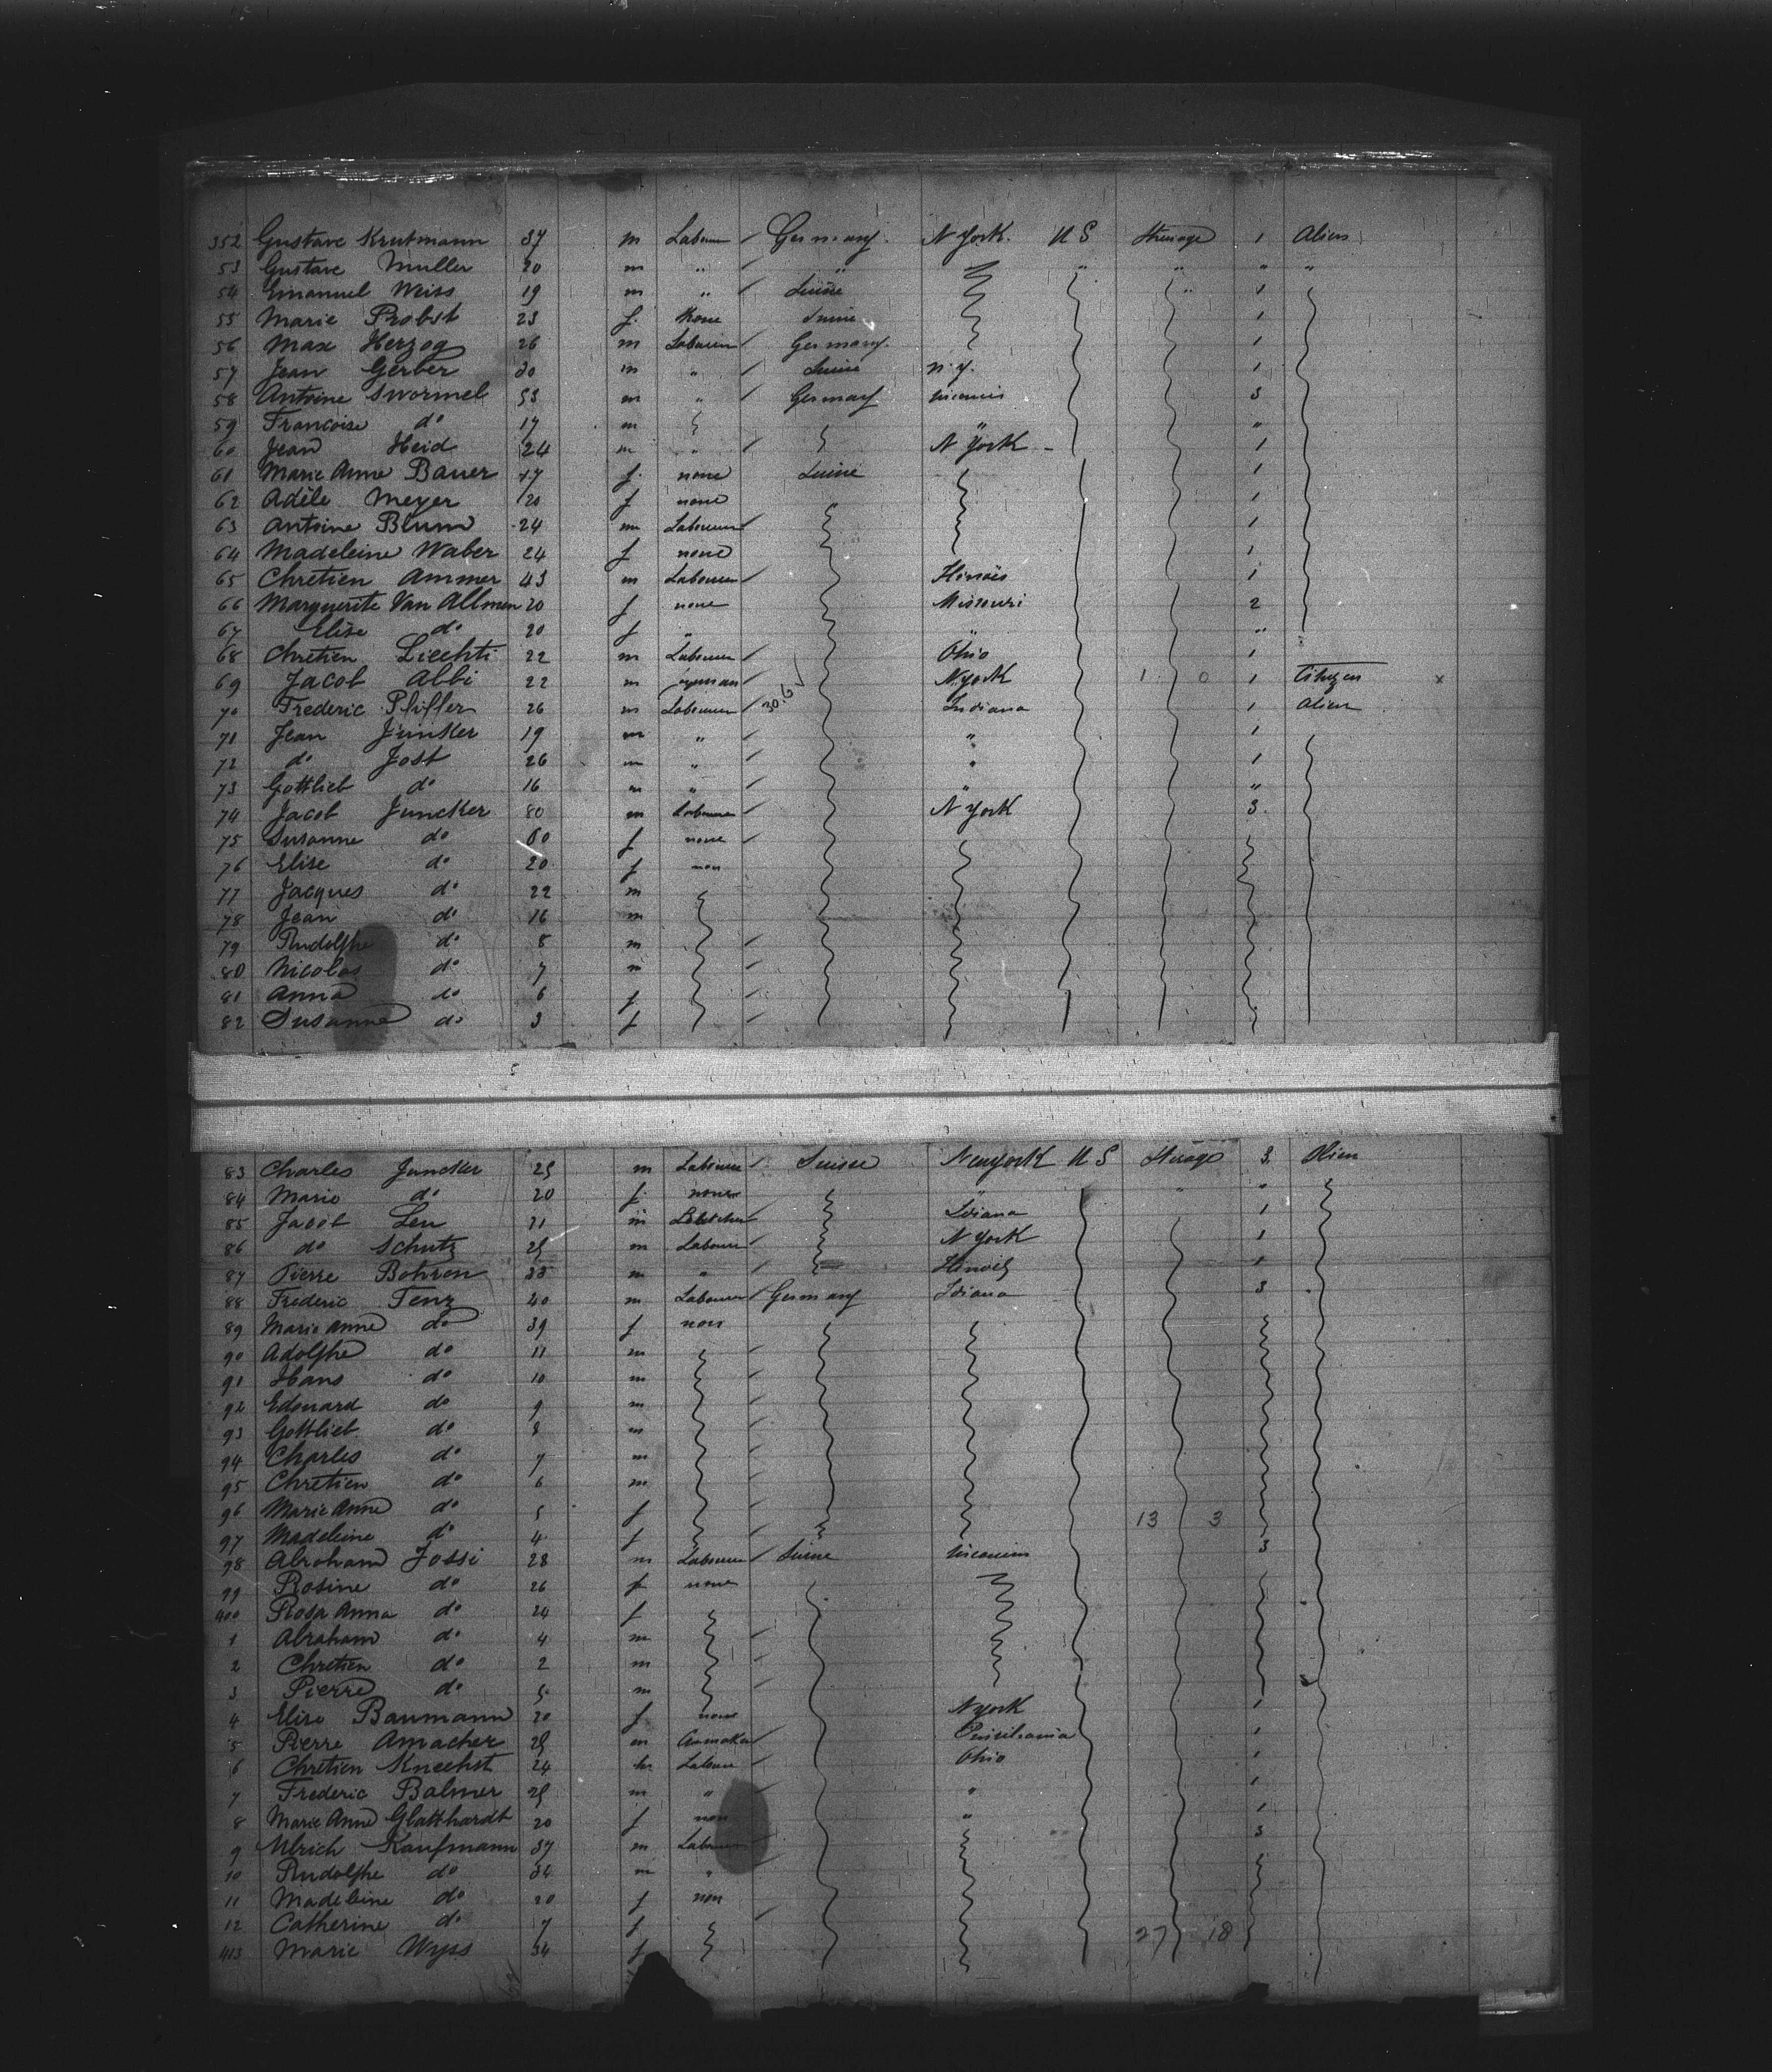 352 Gustave Krutmann 37 m Labourer Germany. N York. U S Steerage 1 Alien
53 Gustave Muller 20 m " " " " " "
54 Emanuel Weiss 19 m " Suisse " 1
55 Marie Probst 23 f. None Suisse 1
56 Max Herzog 26 m Labourer Germany. 1
57 Jean Gerber 30 m " Suisse N.Y. 1
58 Antoine Swormel 53 m " Germany 3
59 Francoise do 17 m " "
60 Jean Heid 24 m " N York - 1
61 Marie Anne Bauer 17 f. none Suisse 1
62 Adèle Meyer 20 f none 1
63 Antoine Blum 24 m Labourer 1
64 Madeleine Waber 24 f none 1
65 Chretien Ammer 43 m Labourer Illinois 1
66 Marguerite Van Allmen 20 f none Missouri 2
67 Elise do 20 f " " "
68 Chretien Liechti 22 m Labourer Ohio 1
69 Jacob Abbi 22 m N York 1 0 1 Citizen x
70 Frederic Pfiffer 26 m Labourer 30.6 Indiana 1 Alien
71 Jean Junker 19 m " " 1
72 do Jost 26 m " " 1
73 Gottlieb do 16 m " " "
74 Jacob Juncker 80 m Labourer N York 3.
75 Susanne do 60 f none
76 Elise do 20 f non
77 Jacques do 22 m
78 Jean do 16 m
79 Rudolphe do 8 m
80 Nicolas do 7 m
81 Anna do 6 f
82 Susanne do 3 f
83 Charles Juncker 25 m Labourer Suisse Newyork U S 3. Alien
84 Marie do 20 f. none " " "
85 Jacob Leu 21 m Idiana 1
86 do Schutz 25 m Labourer N York 1
87 Pierre Bohren 33 m " 1
88 Frederic Tenz 40 m Labourer Germany Idiana 3
89 Marie Anne do 39 f non
90 Adolphe do 11 m
91 Hans do 10 m
92 Edouard do 9 m
93 Gottlieb do 8 m
94 Charles do 7 m
95 Chretien do 6 m
96 Marie Anne do 5 f 13 3
97 Madeleine do 4 f
98 Abraham Jossi 28 m Labourer Suisse 3
99 Rosine do 26 f none
400 Rosa Anna do 24 f
1 Abraham do 4 m
2 Chretien do 2 m
3 Pierre do 5 m
4 Elise Baumann 20 f none N York 1
5 Pierre Amacher 25 m 1
6 Chretien Knechst 24 m Labourer Ohio 1
7 Frederic Balmer 25 m " " 1
8 Marie Anne Glatthardt 20 f non " 1
9 Ulrich Kaufmann 37 m Labourer 3
10 Rudolphe do 34 m "
11 Madeleine do 20 f non
12 Catherine do 7 f 27 18
413 Marie Wyss 34 f